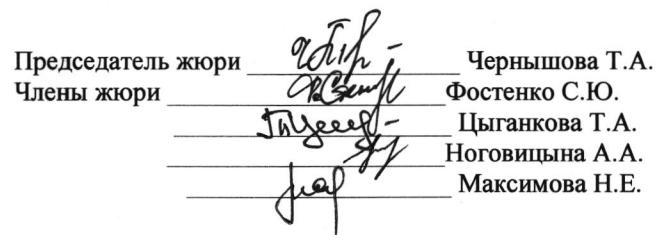 Председатель жюри Чернышова Т.А.
Члены жюри Фостенко С.Ю.
Цыганкова Т.А.
Ноговицына А.А.
Максимова Н.Е.